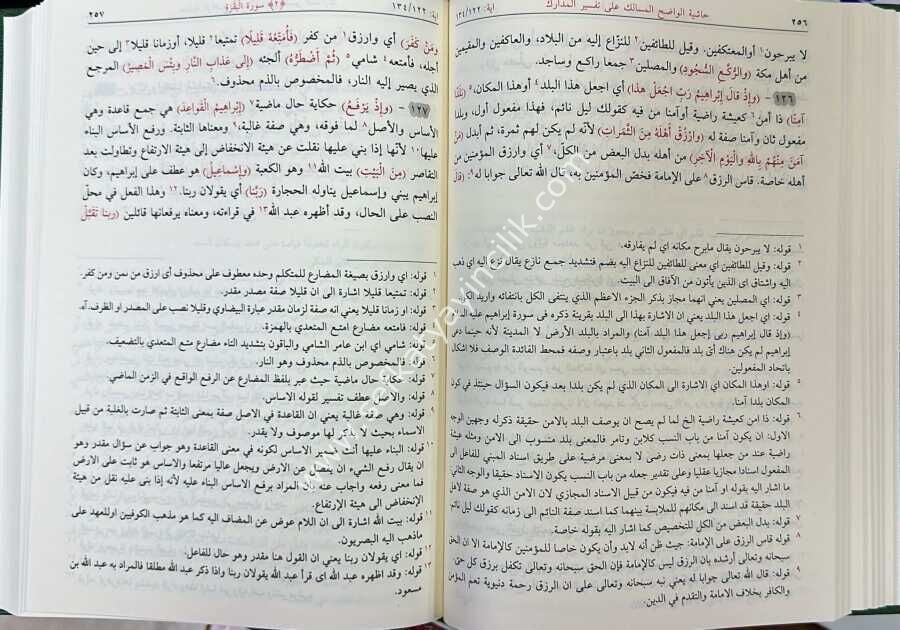 ٢٥٦ حاشية الواضح المسالك على تفسير المدارك آية: ١٣٤/١٢٢
لا يبرحون١ أو المعتكفين. وقيل للطائفين٢ للنزّاع إليه من البلاد، والعاكفين والمقيمين
من أهل مكة (والرُّكَّعِ السُّجُودِ) والمصلين٣ جمعا راكع وساجد.
١٢٦ - (وَإِذْ قالَ إِبْراهِيمُ رَبِّ اجْعَلْ هذا) أي اجعل هذا البلد٤ أو هذا المكان،٥ (بَلَدًا
آمنًا) ذا أمن٦ كعيشة راضية أو آمنا من فيه كقولك ليل نائم، فهذا مفعول أول، وبلدا
مفعول ثان وآمنا صفة له (وَارْزُقْ أَهْلَهُ مِنَ الثَّمَراتِ) لأنه لم يكن لهم ثمرة، ثم أبدل (مَنْ
آمَنَ مِنْهُمْ بِاللَّهِ وَالْيَوْمِ الْآخِرِ) من أهله بدل البعض من الكلّ،٧ أي وارزق المؤمنين من
أهله خاصة. قاس الرزق٨ على الإمامة فخصّ المؤمنين به، قال الله تعالى جوابا له٩ (قالَ
١ قوله: لا يبرحون يقال مابرح مكانه اي لم يفارقه.
٢ قوله: وقيل للطائفين اي معنى للطائفين للنزاع اليه بضم فتشديد جمع نازع يقال نزع اليه اي ذهب
اليه واشتاق اي الذين يأتون من الآفاق الى البيت.
٣ قوله: اي المصلين يعني انهما مجاز بذكر الجزء الاعظم الذي ينتفى الكل بانتفائه واريد الكل.
٤ قوله: اي اجعل هذا البلد يعني ان الاشارة بهذا الى البلد بقرينة ذكره فى سورة إبراهيم عليه السلام
(وإذ قال إبراهيم ربى إجعل هذا البلد آمنا) والمراد بالبلد الأرض لا المدينة لأنه حينما دعى
إبراهيم لم يكن هناك أىّ بلد فالمفعول الثاني بلد باعتبار وصفه فمحط الفائدة الوصف فلا اشكال
باتحاد المفعولين.
٥ قوله: اوهذا المكان اي الاشارة الى المكان الذي لم يكن بلدا بعد فيكون السؤال حينئذ في كون
المكان بلدا آمنا.
٦ قوله: ذا امن كعيشة راضية الخ لما لم يصح ان يوصف البلد بالامن حقيقة ذكر له وجهين الوجه
الاول: ان يكون آمنا من باب النسب كلابن وتامر فالمعنى بلد منسوب الى الامن ومثله عيشة
راضية عند من جعلها بمعنى ذات رضى لا بمعنى مرضية على طريق اسناد المبني للفاعل الى
المفعول اسنادا مجازيا عقليا وعلى تقدير جعله من باب النسب يكون الاسناد حقيقا والوجه الثاني
ما اشار اليه بقوله او آمنا من فيه فيكون من قبيل الاسناد المجازي لان الامن الذي هو صفة لأهل
البلد حقيقة قد اسند الى مكانهم للملابسة بينهما كما اسند صفة النائم الى زمانه كقولك ليل نائم
٧ قوله: بدل البعض من الكل للتخصيص كما اشار اليه بقوله خاصة.
٨ قوله: قاس الرزق على الإمامة: حيث ظن أنه لابد وأن يكون خاصا للمؤمنين كالإمامة الا ان الحق
سبحانه وتعالى أرشده بان الرزق ليس كالإمامة فإن الحق سبحانه وتعالى تكفل برزق كل حي
٩ قوله: قال الله تعالى جوابا له يعني نبه سبحانه وتعالى على ان الرزق رحمة دنيوية تعم المؤمن
والكافر بخلاف الامامة والتقدم في الدين.
آية: ١٣٤/١٢٢ ﴿٢﴾ سورة البقرة ٢٥٧
وَمَنْ كَفَرَ) أي وارزق١ من كفر (فَأُمَتِّعُهُ قَلِيلًا) تمتيعا٢ قليلا، أوزمانا قليلا٣ إلى حين
أجله، فأمتعه٤ شامي٥ (ثُمَّ أَضْطَرُّهُ) ألجئه (إِلى عَذابِ النَّارِ وَبِئْسَ الْمَصِيرُ) المرجع
الذي يصير إليه النار، فالمخصوص بالذم محذوف.٦
١٢٧ - (وَإِذْ يَرْفَعُ) حكاية حال ماضية٧ (إِبْراهِيمُ الْقَواعِدَ) هي جمع قاعدة وهي
الأساس والأصل٨ لما فوقه، وهي صفة غالبة،٩ ومعناها الثابتة. ورفع الأساس البناء
عليها١٠ لأنها إذا بني عليها نقلت عن هيئة الانخفاض إلى هيئة الارتفاع وتطاولت بعد
التقاصر (مِنَ الْبَيْتِ) بيت الله١١ وهو الكعبة (وَإِسْماعِيلُ) هو عطف على إبراهيم، وكان
إبراهيم يبني وإسماعيل يناوله الحجارة (رَبَّنا) أي يقولان ربنا.١٢ وهذا الفعل في محلّ
النصب على الحال، وقد أظهره عبد الله١٣ في قراءته، ومعناه يرفعانها قائلين (ربنا تَقَبَّلْ
١ قوله: اي وارزق بصيغة المضارع للمتكلم وحده معطوف على محذوف أى ارزق من آمن ومن كفر.
٢ قوله: تمتيعا قليلا اشارة الى ان قليلا صفة مصدر مقدر.
٣ قوله: او زمانا قليلا يعني انه صفة لزمان مقدر عبارة البيضاوي وقليلا نصب على المصدر او الظرف. آه.
٤ قوله: فامتعه مضارع امتع المتعدي بالهمزة.
٥ قوله: شامي اي ابن عامر الشامي والباقون بتشديد التاء مضارع متع المتعدي بالتضعيف.
٦ قوله: فالمخصوص بالذم محذوف وهو النار.
٧ قوله: حكاية حال ماضية حيث عبر بلفظ المضارع عن الرفع الواقع في الزمن الماضي.
٨ قوله: والأصل عطف تفسير لقوله الاساس.
٩ قوله: وهي صفة غالبة يعني ان القاعدة في الاصل صفة بمعنى الثابتة ثم صارت بالغلبة من قبيل
الاسماء بحيث لا يذكر لها موصوف ولا يقدر.
١٠ قوله: البناء عليها أنث ضمير الاساس لكونه في معنى القاعدة وهو جواب عن سؤال مقدر وهو
ان يقال رفع الشيء ان يفصل عن الارض ويجعل عاليا مرتفعا والاساس هو ثابت على الارض
فما معنى رفعه واجاب عنه بان المراد برفع الاساس البناء عليه لأنه إذا بنى عليه نقل من هيئة
الإنخفاض الى هيئة الإرتفاع.
١١ قوله: بيت الله اشارة الى ان اللام عوض عن المضاف اليه كما هو مذهب الكوفيين اوللعهد على
ماذهب اليه البصريون.
١٢ قوله: اي يقولان ربنا يعني ان القول هنا مقدر وهو حال للفاعل.
١٣ قوله: وقد اظهره عبد الله اى قرأ عبد الله يقولان ربنا واذا ذكر عبد الله مطلقا فالمراد به عبد الله بن
مسعود.
www.sefkatyayincilik.com